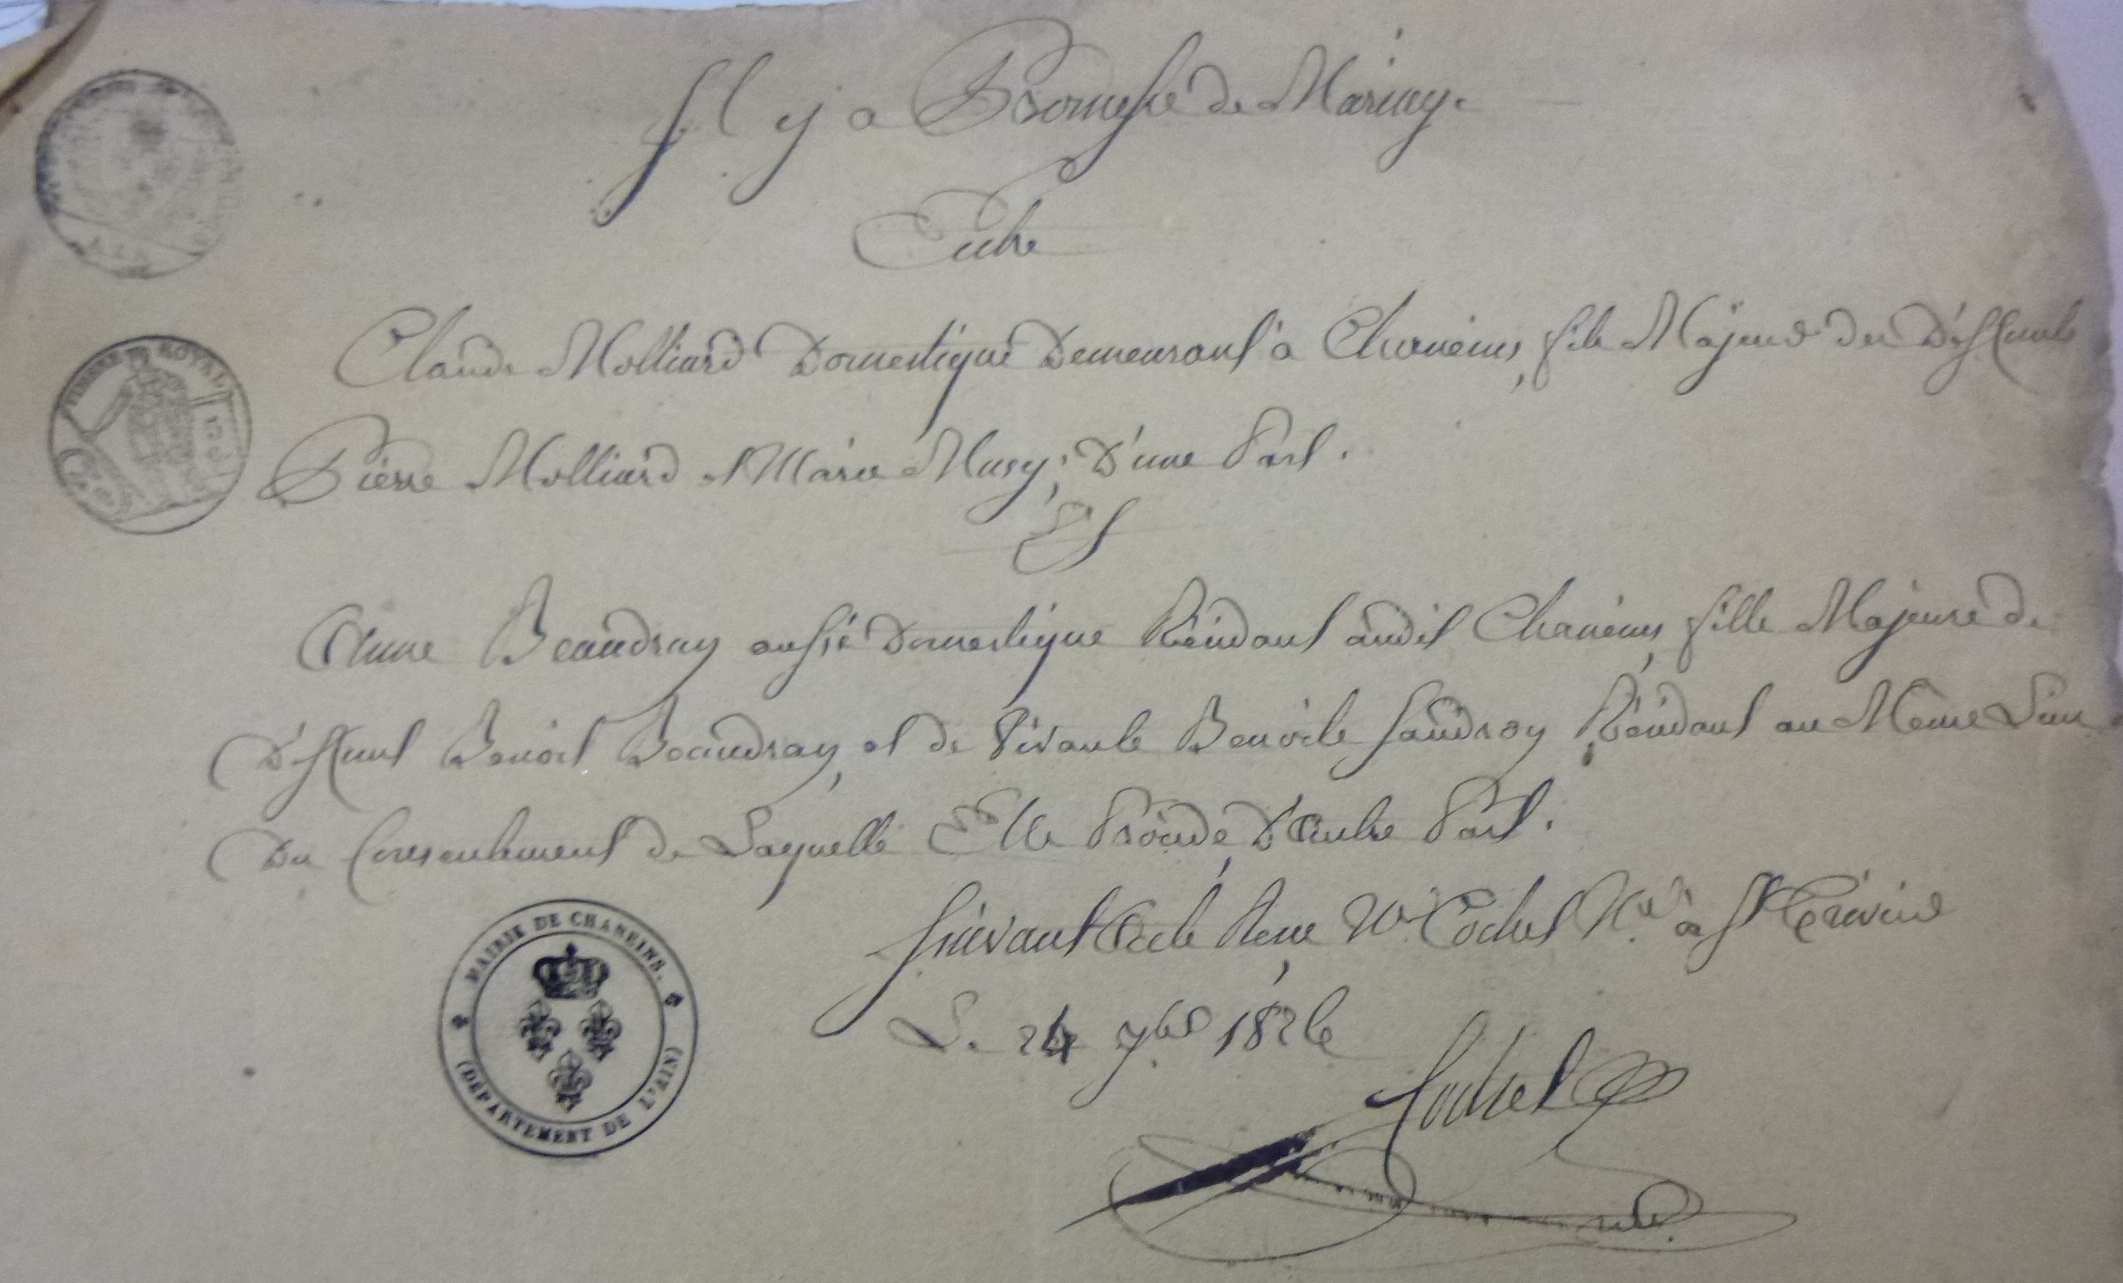 Il y a Promesse de Mariag.
Entre
Claude Molliard Domestique Demeurant à Chaneins, fils Majeur des Défunts
Pierre Molliard et Marie Mury, D'une Part.
Et
Anne Beaudray aussi Domestique Résidant audit Chaneins, fille Majeure de
Défunt Benoit Beaudray, et de Vivante Benoite Saudroy Résidant au Même Lieu
Du Consentement de Laquelle Elle Procède, D'Autre Part.
Suivant Acte Reçu, Me Cochet Nre à St Trivier
Le 24 7bre 1826
Cochet
TIMBRE ROYAL
MAIRIE DE CHANEINS.
(DÉPARTEMENT DE L'AIN)